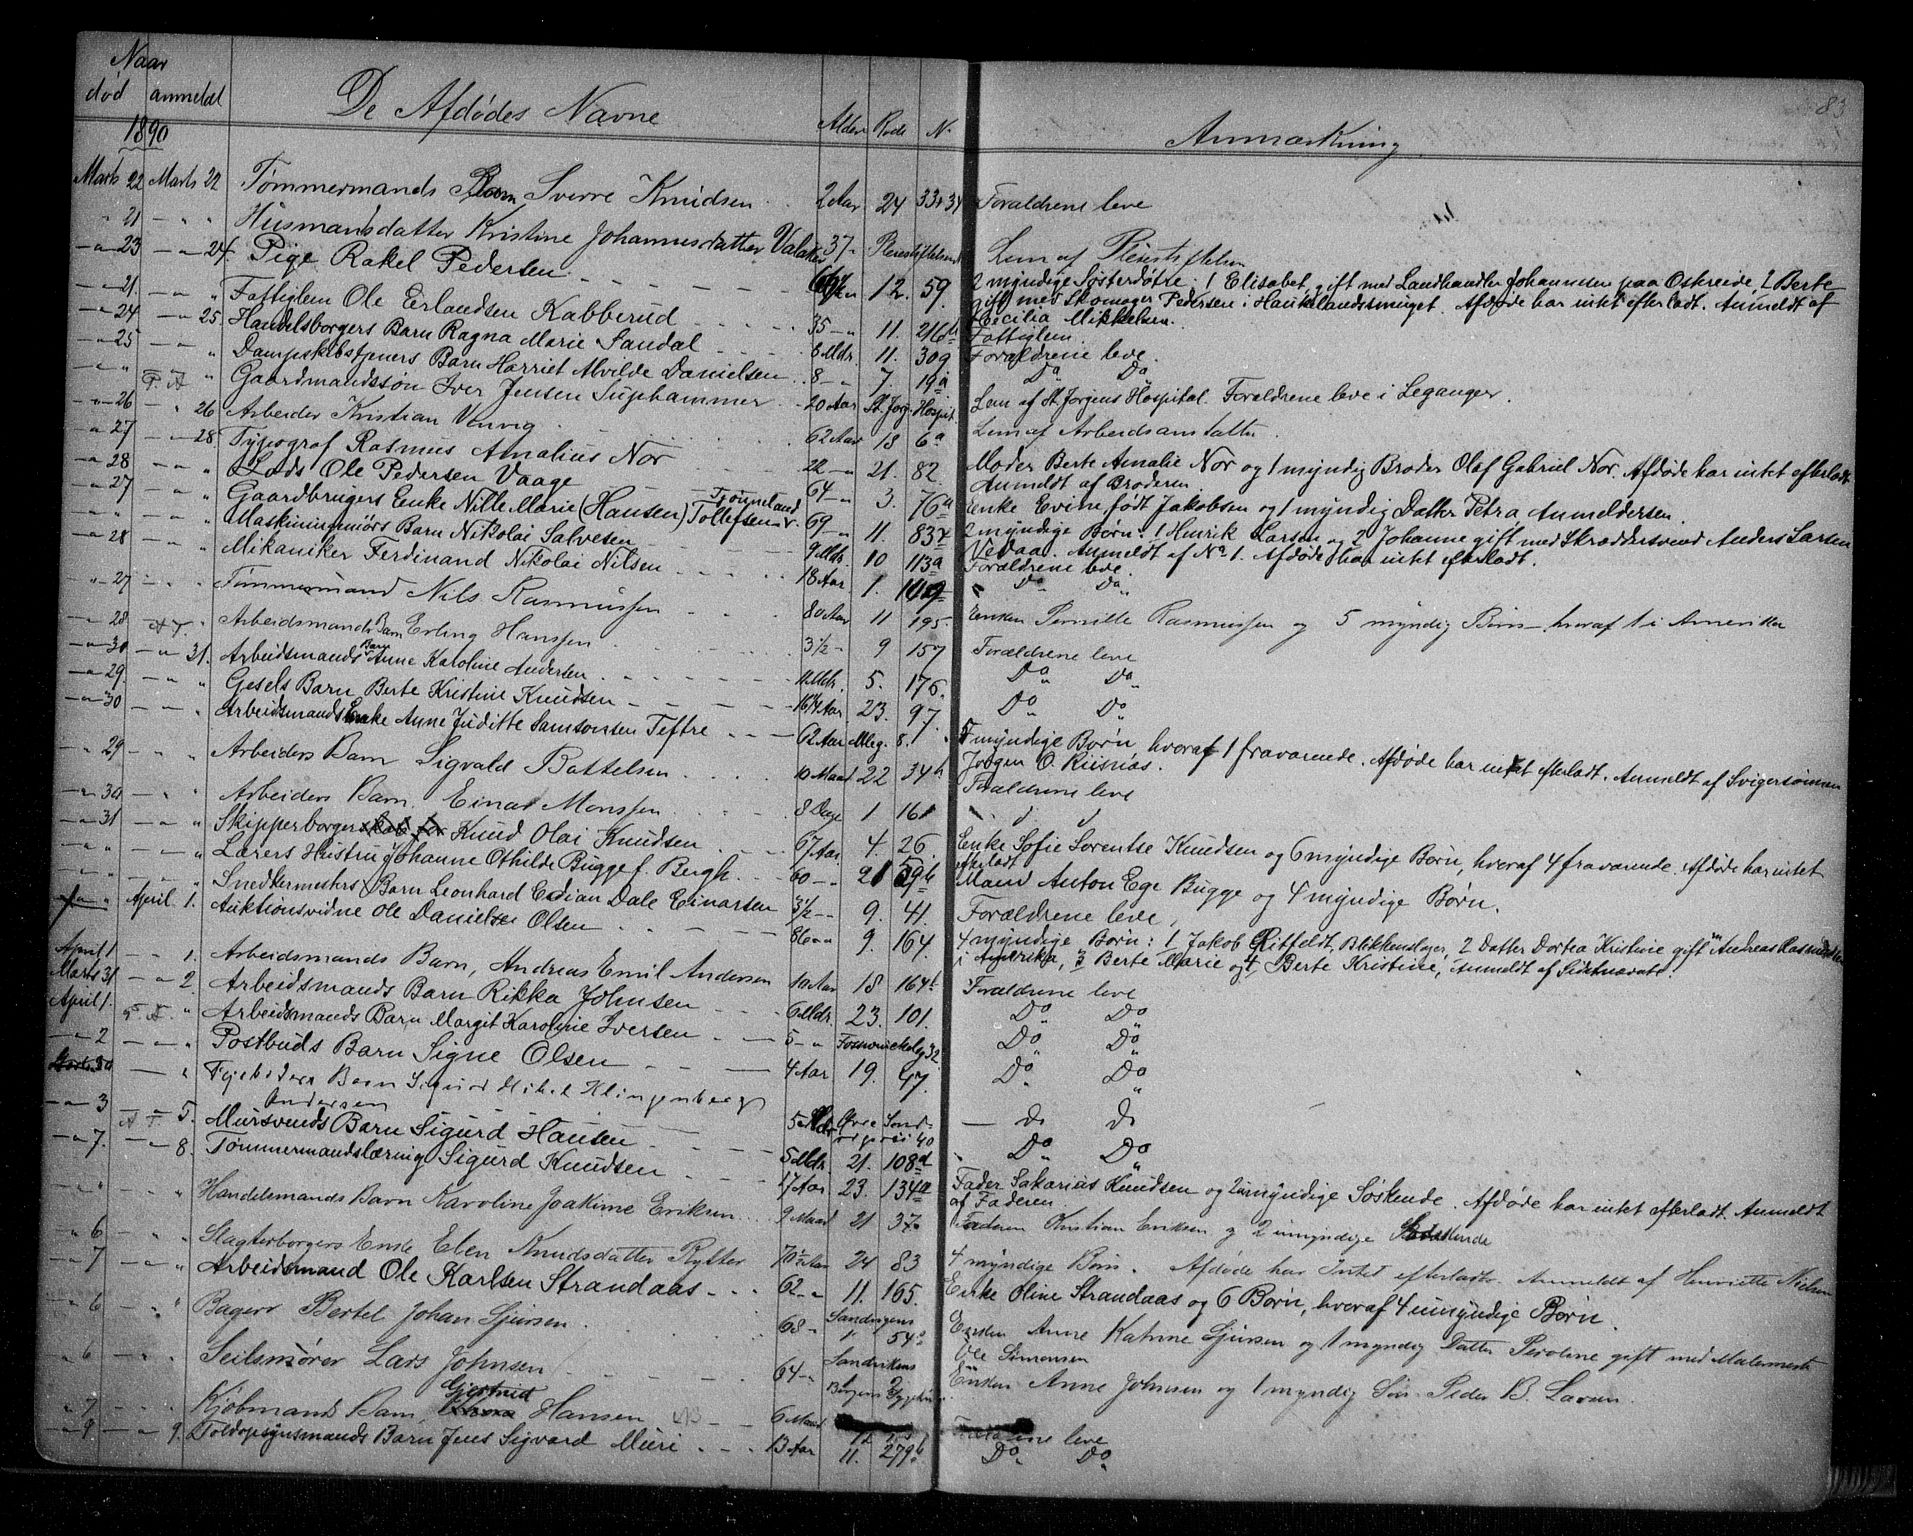 83
Naar
død anmeldt De Afdødes Navne Alder Rode N. Anmærkning
1890
Marts 22 Marts 22 Tømmermands Barn Sverre Knudsen 2 Aar 24 33+34 Forældrene leve
" 21 - " " Husmansdatter Kristine Johannesdatter Valaker 37 - Pleiestiftelsen Lem af Pleiestiftelsen
-"- 23 -"- 24. Pige Rakel Pedersen 12. 59. 2 myndige Søsterdøtre: 1 Elisabet, gift med Landhandler Johannesen paa Oskreide, 2 Berte
gift med Skomager Pedersen i Haukelandsmuget. Afdøde har intet efterladt. Anmeldt af
Cecilia Mikkelsen.
-"- 21. -"- " Fattiglem Ole Erlandsen Kabberud 35 -"- 11. 216b Fattiglem.
-"- 24 -"- 25. Handelsborgers Barn Ragna Marie Sandal 8 Mdr. 11. 309 Forældrene leve.
-"- 25 -"- " Dampskibstjeners Barn Harriet Alvilde Danielsen 8 -"- 7. 19a Do Do
-"- " F. A. " Gaardmandssøn Iver Jensen Supehammer 20 Aar St. Jørg. Hospit. Lem af St. Jørgens Hospital. Forældrene leve i Leganger.
-"- 26 - " 26 Arbeider Kristian Venvig 62 Aar 18 6a Lem af Arbeidsanstalten
-"- 27 -"- 28. Typograf Rasmus Amalius Nor 22 -"- 21. 82. Moder Berte Amalie Nor og 1 myndig Broder Olaf Gabriel Nor. Afdøde har intet efterladt.
Anmeldt af Broderen.
-"- 28 -"- " Lods Ole Pedersen Vaage 64 -"- 3. 76a Enke Evine født Jakobsen og 1 myndig Datter Petra Anmeldersen.
-"- 27 -"- " Gaardbrugers Enke Nille Marie (Hansen) Tollefsen 69 -"- 11. 83 2 myndige Børn: 1 Henrik Larsen og 2 Johanne gift med Skræddersvend Anders Larsen
Vedaa. Anmeldt af No 1. Afdøde har intet efterladt.
-"- " -"- " Maskiningeniørs Barn Nikolai Salvesen 9 Mdr. 10 113a Forældrene leve.
-"- 28 -"- " Mikaniker Ferdinand Nikolai Nilsen 18 Aar 1. Do Do
" 27 - " " Tømmermand Nils Rasmussen 80 Aar 11 195 Enken Pernille Rasmussen og 5 myndig Børn - hvoraf 1 i Amerika
-"- 28 A F. " Arbeidsmands Barn Erling Hanssen 3 1/2 - 9 157 Forældrene leve
-"- 30 -"- 31. Arbeidsmands Barn Anne Karoline Andersen 11 Mdr. 5. 176. Do Do
-"- 29. -"- " Gesels Barn Berte Kristine Knudsen 23. 97. Do Do
-"- 30 -"- " Arbeidsmands Enke Anne Juditte Samsonsen Teftre 62 Aar Mleg. 8. 5 myndige Børn, hvoraf 1 fraværende. Afdøde har intet efterladt. Anmeldt af Svigersønnen
Jørgen O. Risnæs.
-"- 29 -"- " Arbeiders Barn Sigvald Battelsen 10 Maad 22 34b Forældrene leve
-"- 30 " " Arbeiders Barn Einar Monssen 8 Dage 1 161 d d
-"- 31 -"- " Skipperborger Knud Olai Knudsen 67 Aar. 4. 26. Enke Sofie Sørentse Knudsen og 6 myndige Børn, hvoraf 4 fraværende. Afdøde har intet
efterladt
-"- " -"- " Lærers Hustru Johanne Othilde Bugge f. Bergh 60 -"- 21 59b Mand Anton Ege Bugge og 4 myndige Børn.
-"- " -"- " Snedkermesters Barn Leonhard Edian Dale Einarsen 3 1/2 -"- 9. 41. Forældrene leve,
" April 1. Auktionsvidne Ole Danielsen Olsen 86 -"- 9. 164. 4 myndige Børn: 1 Jakob Ritfeldt, Blikkenslager, 2 Datter Dortea Kristine gift m Andreas Rasmussen
i Amerika, 3 Berte Marie og 4 Berte Kristine, Anmeldt af Sidstnævnte.
April 1 - " 1. Arbeidsmands Barn, Andreas Emil Andersen 10 Aar 18 164b Forældrene leve
Marts 31 -"- 2. Arbeidsmands Barn Rikka Johnsen 6 Mdr. 23. 101. Do Do
April 1. F. A. " Arbeidsmands Barn Margit Karoline Iversen 5 -"- 32 Do Do
-"- 2 -"- " Postbuds Barn Signe Olsen 4 Aar 19. 97. Do Do
Marts 30 - " Barn Sigurd Mikal Klingenberg
Andersen Øvre Sand- 40 - do do
-"- 3 A F 5. Mursvends Barn Sigurd Hansen 5 Mdr. 21. 108d Do Do
-"- 7. -"- 8. Tømmermandslæring Sigurd Knudsen 17 Aar 23. 134a Fader Sakarias Knudsen og 2 umyndige Søskende. Afdøde har intet efterladt. Anmeldt
af Faderen
-"- " -"- " Handelsmands Barn Karoline Joakime Eriksen 9 Maad 21 37 Faderen Kristian Eriksen og 2 umyndige Søskende
" 6 - " " Slagterborgers Enke Elen Knudsdatter Rytter 70 1/2 Aar 24 83 4 myndige Børn. Afdøde har Intet efterladt. Anmeldt af Henriette Nielsen
-"- 7 -"- " Arbeidsmand Ole Karlsen Strandaas 62 -"- 11. 165. Enke Oline Strandaas og 6 Børn, hvoraf 4 umyndige Børn.
-"- 6 -"- " Bager Bertel Johan Sjursen 68 - Sandvigens 54 Enken Anne Katrine Sjursen og 1 myndig Datter Peroline gift med Malermester
Ole Simonsen
" 6 -"- " Seilsmører Lars Johnsen 64 - Sandvikens Enken Anne Johnsen og 1 myndig Søn Peder B. Larsen
" 7 -"- " Kjøbmands Barn, Gjertrud Hansen 6 Maad 12 Forældrene leve
-"- 9 -"- 9. Toldopsynsmands Barn Jens Sigvard Muri 13 Aar 11. 279b Do Do